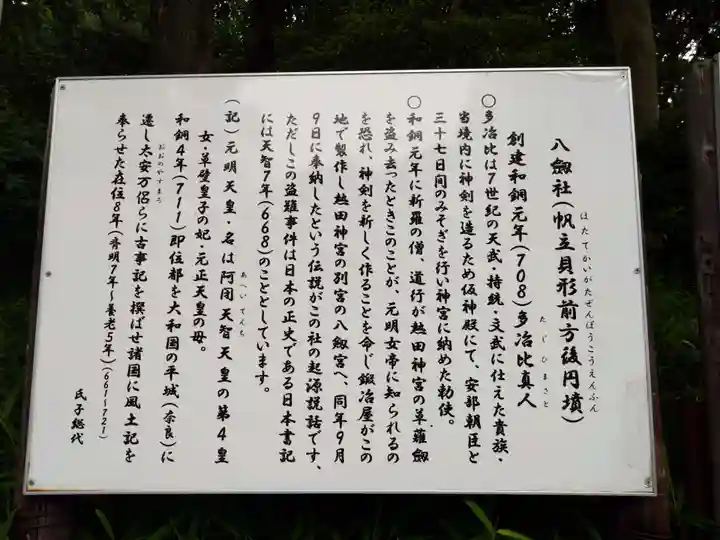 八劔社(帆立貝形前方後円墳)
ほたてかいがたぜんぽうこうえんふん
創建和銅元年(708)多治比真人
たじひまさと
○多治比は7世紀の天武・持統・文武に仕えた貴族・
当境内に神剣を造るため仮神殿にて、安部朝臣と
三十七日間のみそぎを行い神宮に納めた勅使。
○和銅元年に新羅の僧、道行が熱田神宮の草薙劔
を盗み去ったときこのことが、元明女帝に知られるの
を恐れ、神剣を新しく作ることを命じ鍛冶屋がこの
地で製作し熱田神宮の別宮の八劔宮へ、同年9月
9日に奉納したという伝説がこの社の起源説話です、
ただしこの盗難事件は日本の正史である日本書記
には天智7年(668)のこととしています。
(記)元明天皇・名は阿閇天智天皇の第4皇
あへいてんち
女・草壁皇子の妃・元正天皇の母。
和銅4年(711)即位都を大和国の平城(奈良)に
遷し太安万侶らに古事記を撰ばせ諸国に風土記を
おおのやすまろ
奉らせた在位8年(斉明7年～養老5年)(661～721)
氏子総代